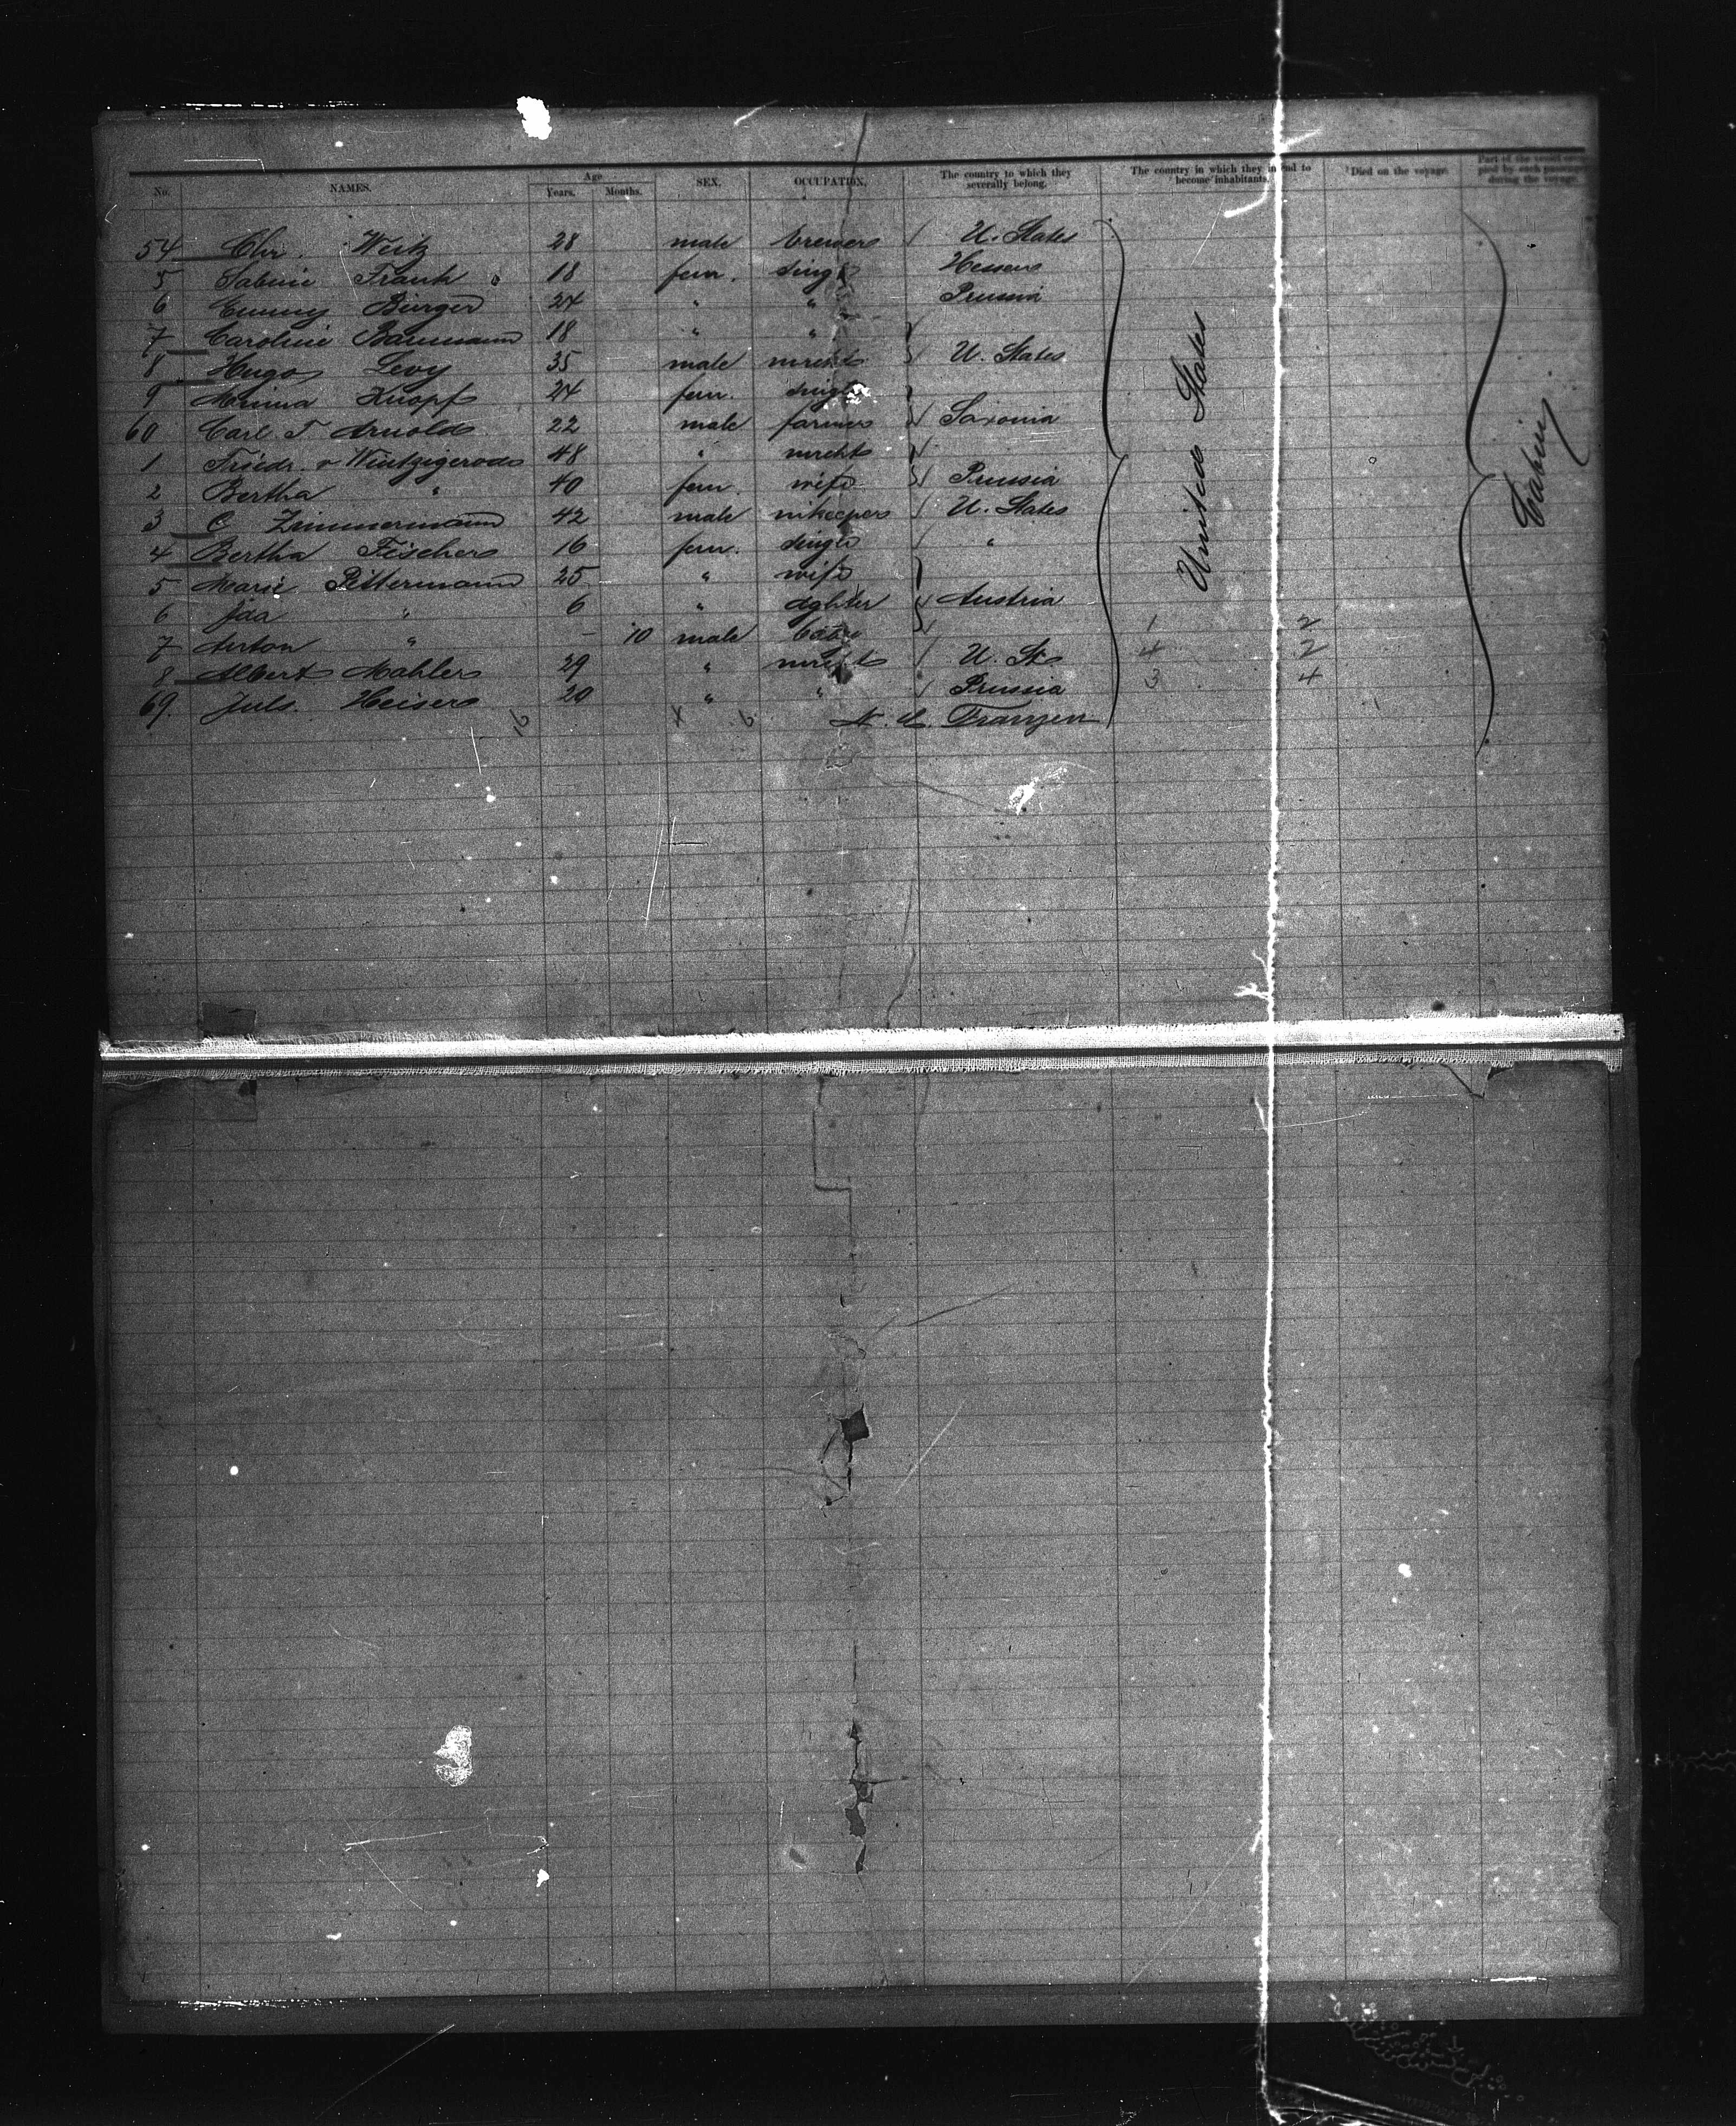 No. NAMES. Age Years. Months. SEX. OCCUPATION, The country to which they severally belong. The country in which they intend to become inhabitants. Died on the voyage. Part of the vessel occupied by each passenger during the voyage.
54 Chr. Weitz 28 male brewer U. States
5 Sabine Frank 18 fem. single Hessen
6 Emmy Bürger 24 " " Prussia
7 Caroline Baumann 18 " "
8 Hugo Levy 35 male mrcht U. States
9 Minna Knopf 24 fem. single
60 Carl T. Arnold 22 male farmer Saxonia
1 Friedr. v Wintzigerode 48 " mrcht
2 Bertha " 40 fem. wife Prussia
3 C Zimmermann 42 male innkeeper U. States
4 Bertha Fischer 16 fem. single "
5 Marie Pittermann 25 " wife
6 Ida " 6 " dghter Austria
7 Anton " – 10 male baby 1 2
8 Albert Mahler 29 " mrcht U. St. 4 2
69. Juls. Heiser 20 " " Prussia 3 4
United States
Cabin
Franzen